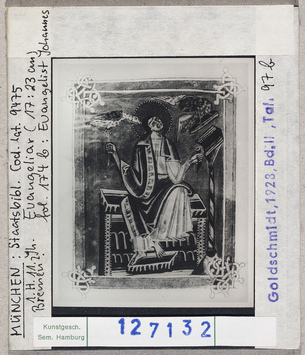 MÜNCHEN: Staatsbibl. Cod. lat. 9475
A. H. 11. Jh. Evangeliar (17:23 cm)
Bremen: fol. 174 b: Evangelist Johannes
Goldschmidt, 1928, Bd. II, Taf. 97 b
Kunstgesch.
Sem. Hamburg
127132